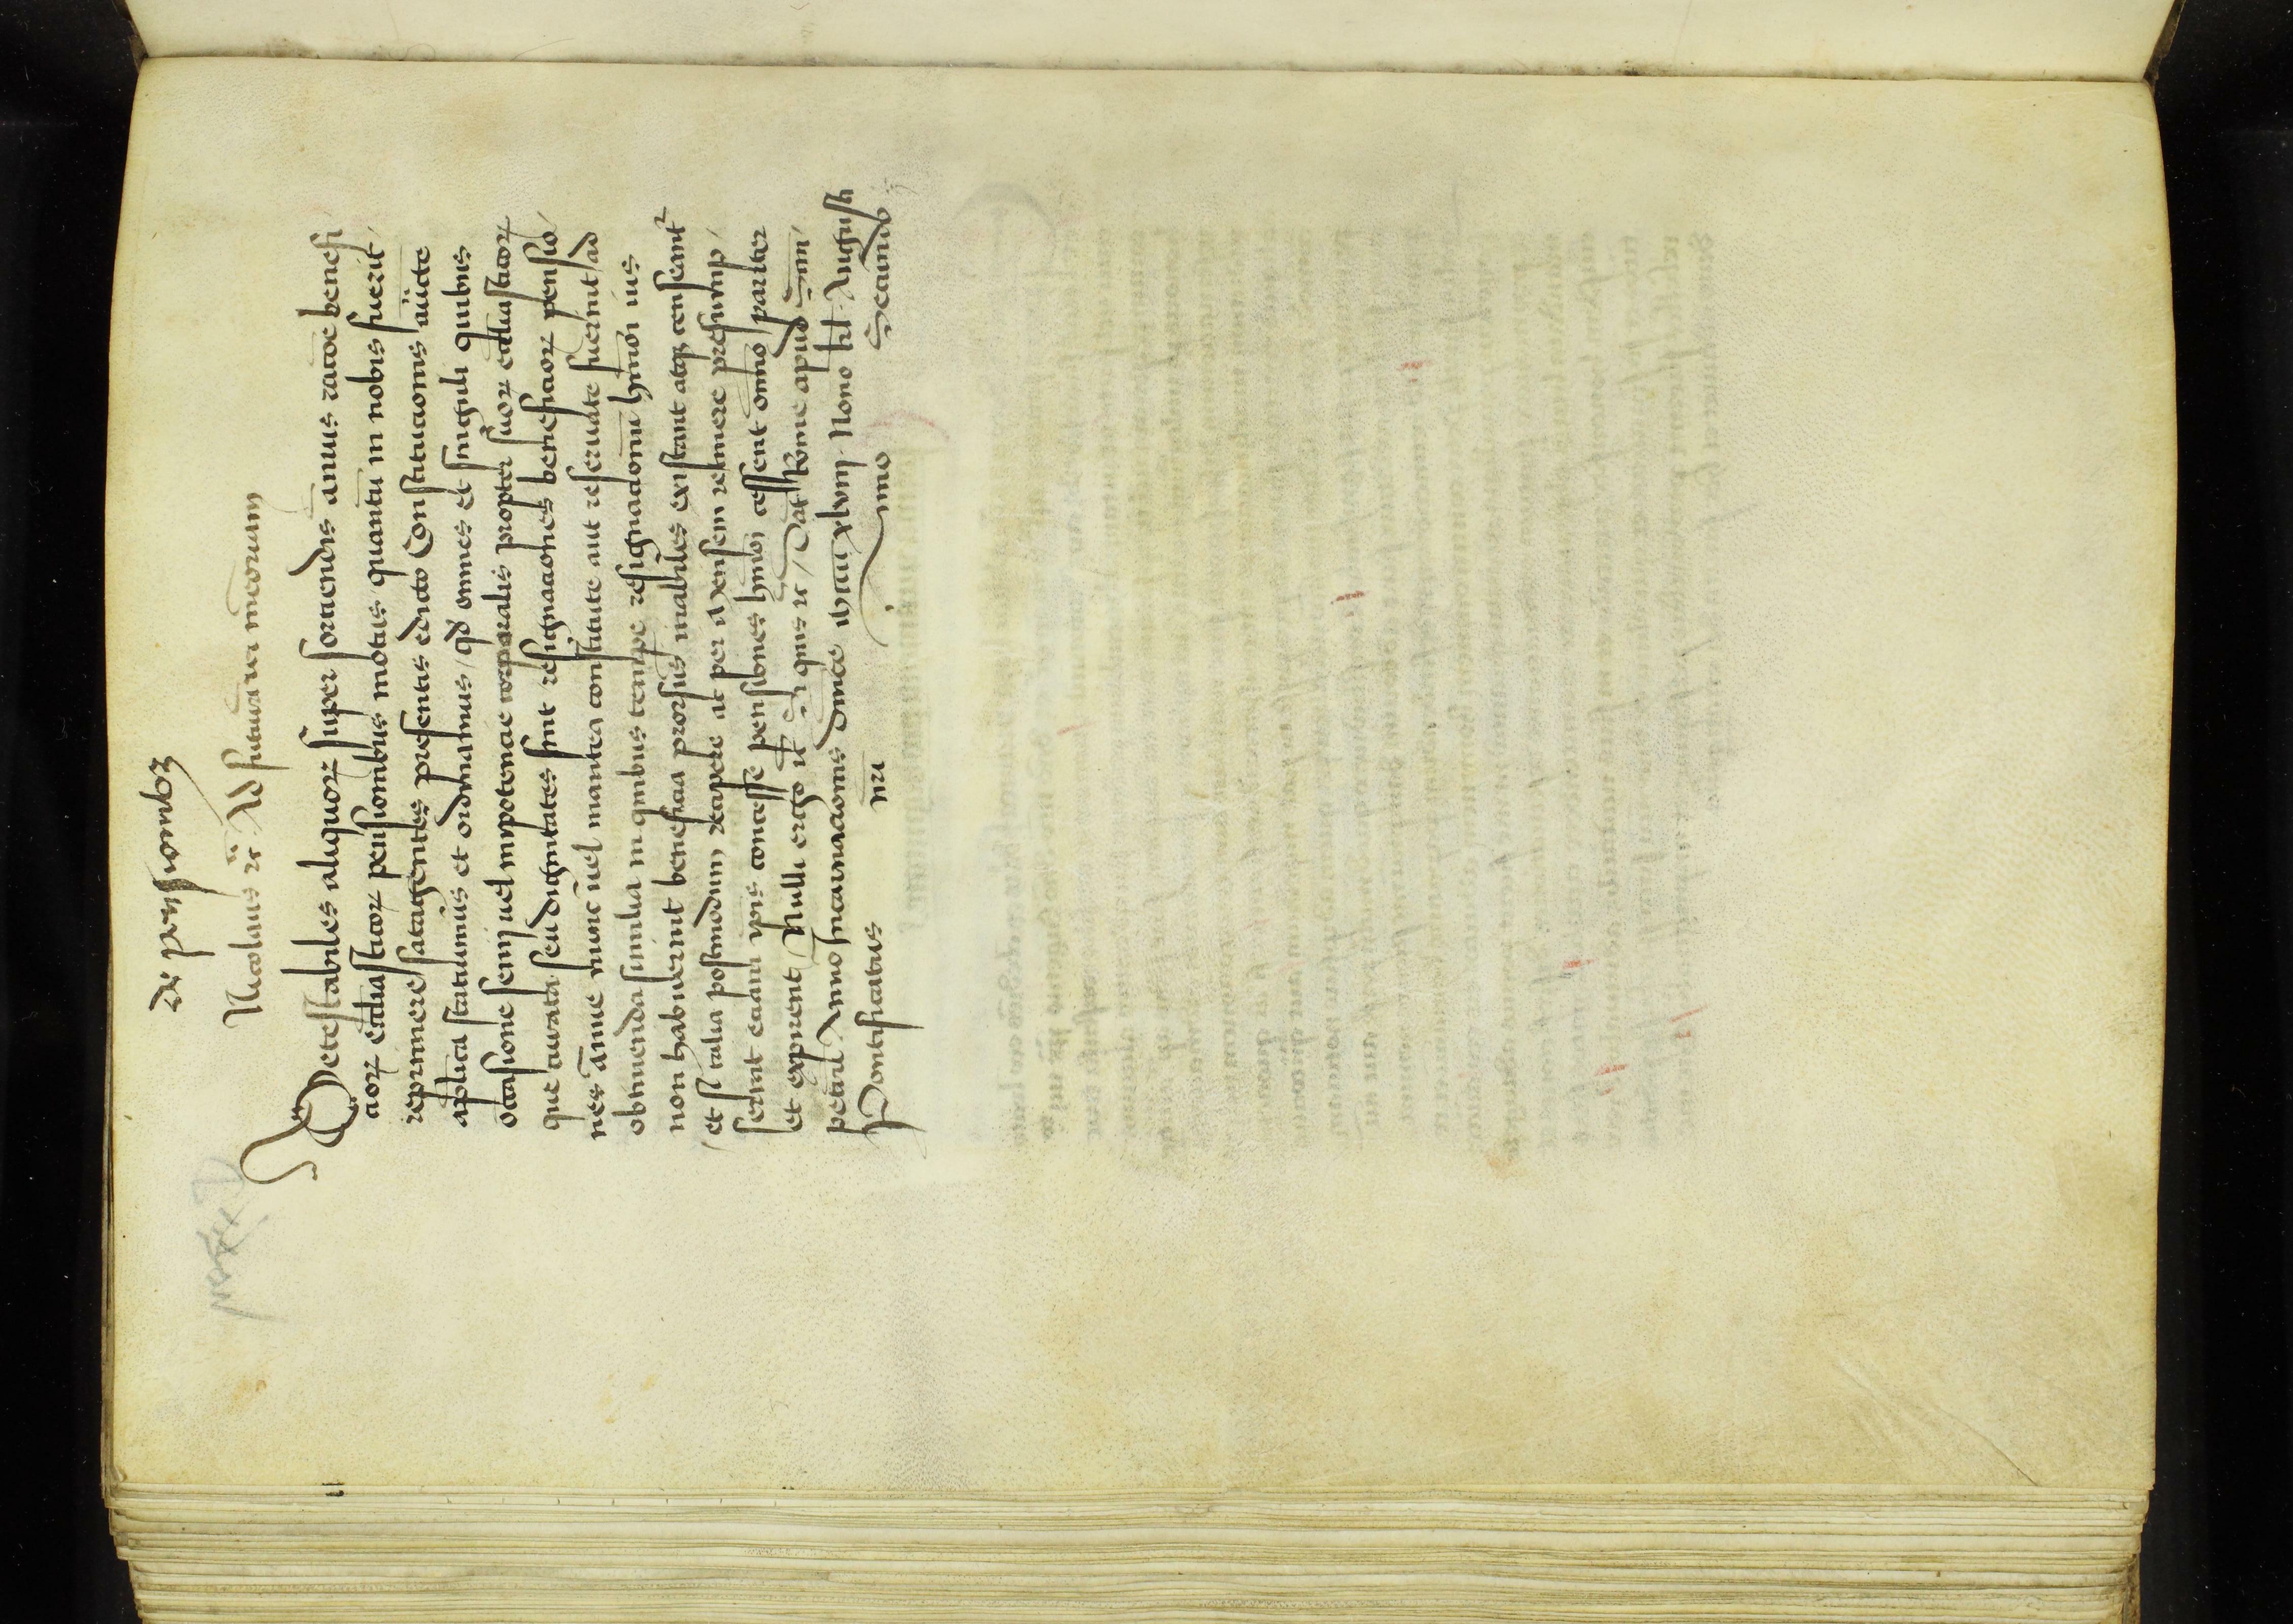 De pensionibꝫ
Nicolaus ꝛc̃ Ad futurā rei mēoriam
Detestabiles aliquoꝝ super sortiendis āmus rat̄oe benefi/
cioꝝ ecc̄liasticoꝝ pensionibus motus quantū in nobis fuerit/
reprimere satagentes presentis edicto Constitucionis auc̄te
ap̄lica statuimus et ordinamus/ qđ omnes et singuli quibus
occasione senij uel impotencie corporalis propter suoꝝ ecc̄liasticoꝝ
que curata seu dignitates sint resignaciones beneficioꝝ pensio/
nes āmue nunc uel inantea constitute aut reseruate fuerint/ ad
obtinenda similia in quibus tempe resignacionū hmōi ius
non habuerint beneficia prorsus inabiles existant atqꝫ censeant̄
/et si talia postmodum recipere ac per Mensem retinere presump/
serint eciam ipīs concesse pensiones hmōi cessent om̄o pariter
et expirent/ Nulli ergo ꝛc̄ Si quis ꝛc̄/ Dat̄ Rome apud Scm̄
petrū Anno Incarnacionis dn̄ice Mccccxlviij Nono kl̄ Augusti
Pontificatus nr̄i Anno Secundo